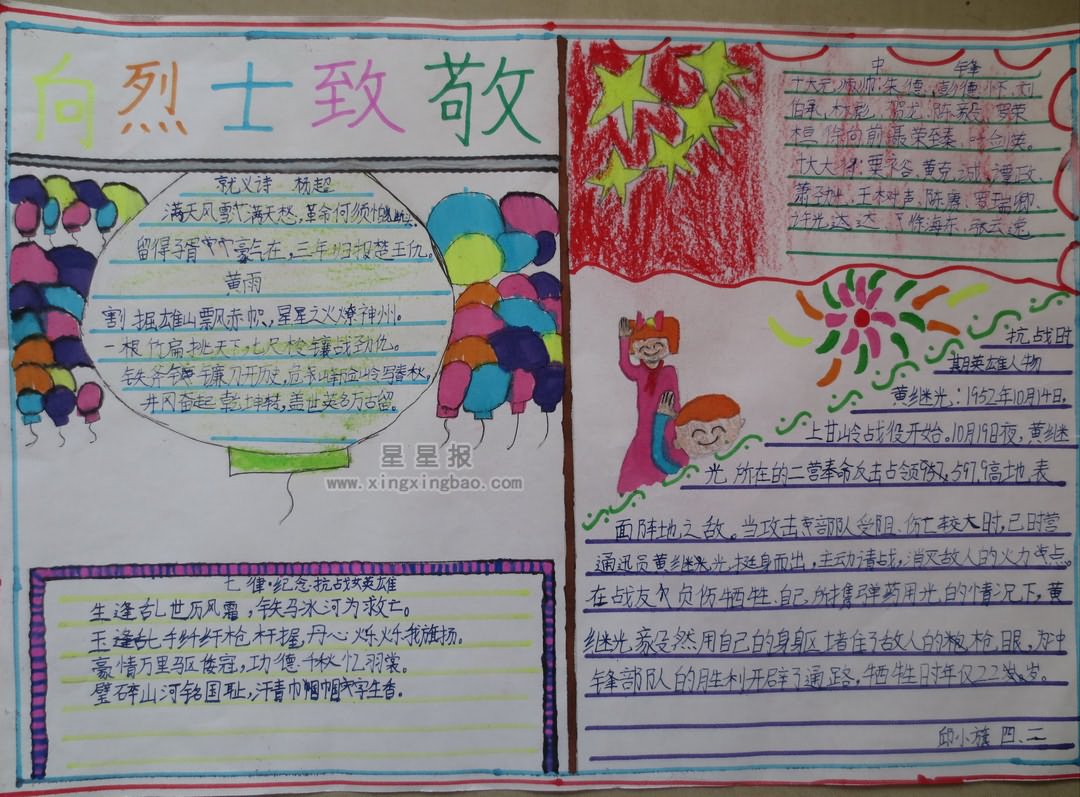 向烈士致敬
就义诗 杨超
满天风雪满天愁,革命何须怕断头。
留得子胥豪气在,三年归报楚王仇。
黄雨
割掘雄山飘赤帜,星星之火燎神州。
一根竹扁挑天下,七尺梭镖战劲仇。
铁斧镰刀开历史,
井冈奋起乾坤转,盖世英名万古留。
星星报
www.xingxingbao.com
七律·纪念抗战女英雄
生逢乱世历风霜,铁马冰河为救亡。
玉纤纤枪杆握,丹心烁烁我旗扬。
豪情万里驱倭寇,功德千秋忆羽裳。
璧碎山河铭国耻,汗青巾帼字生香。
中 锋
十大元帅:朱德,彭德怀,刘
伯承,林彪,贺龙,陈毅,罗荣
桓,徐向前,聂荣臻,叶剑英。
十大大将:粟裕,黄克诚,谭政
萧劲光,王树声,陈赓,罗瑞卿,
许光达,徐海东,张云逸
抗战时
期英雄人物
黄继光:1952年10月14日,
上甘岭战役开始。10月19日夜,黄继
光所在的二营奉命反击占领597.9高地表
面阵地之敌。当攻击部队受阻、伤亡较大时,已时营
通讯员黄继光,挺身而出,主动请战,消灭敌人的火力点。
在战友负伤牺牲,自己所携弹药用光的情况下,黄
继光毅然用自己的身躯堵住了敌人的枪眼,为冲
锋部队的胜利开辟了通路,牺牲时年仅22岁。
邱小旗 四、二